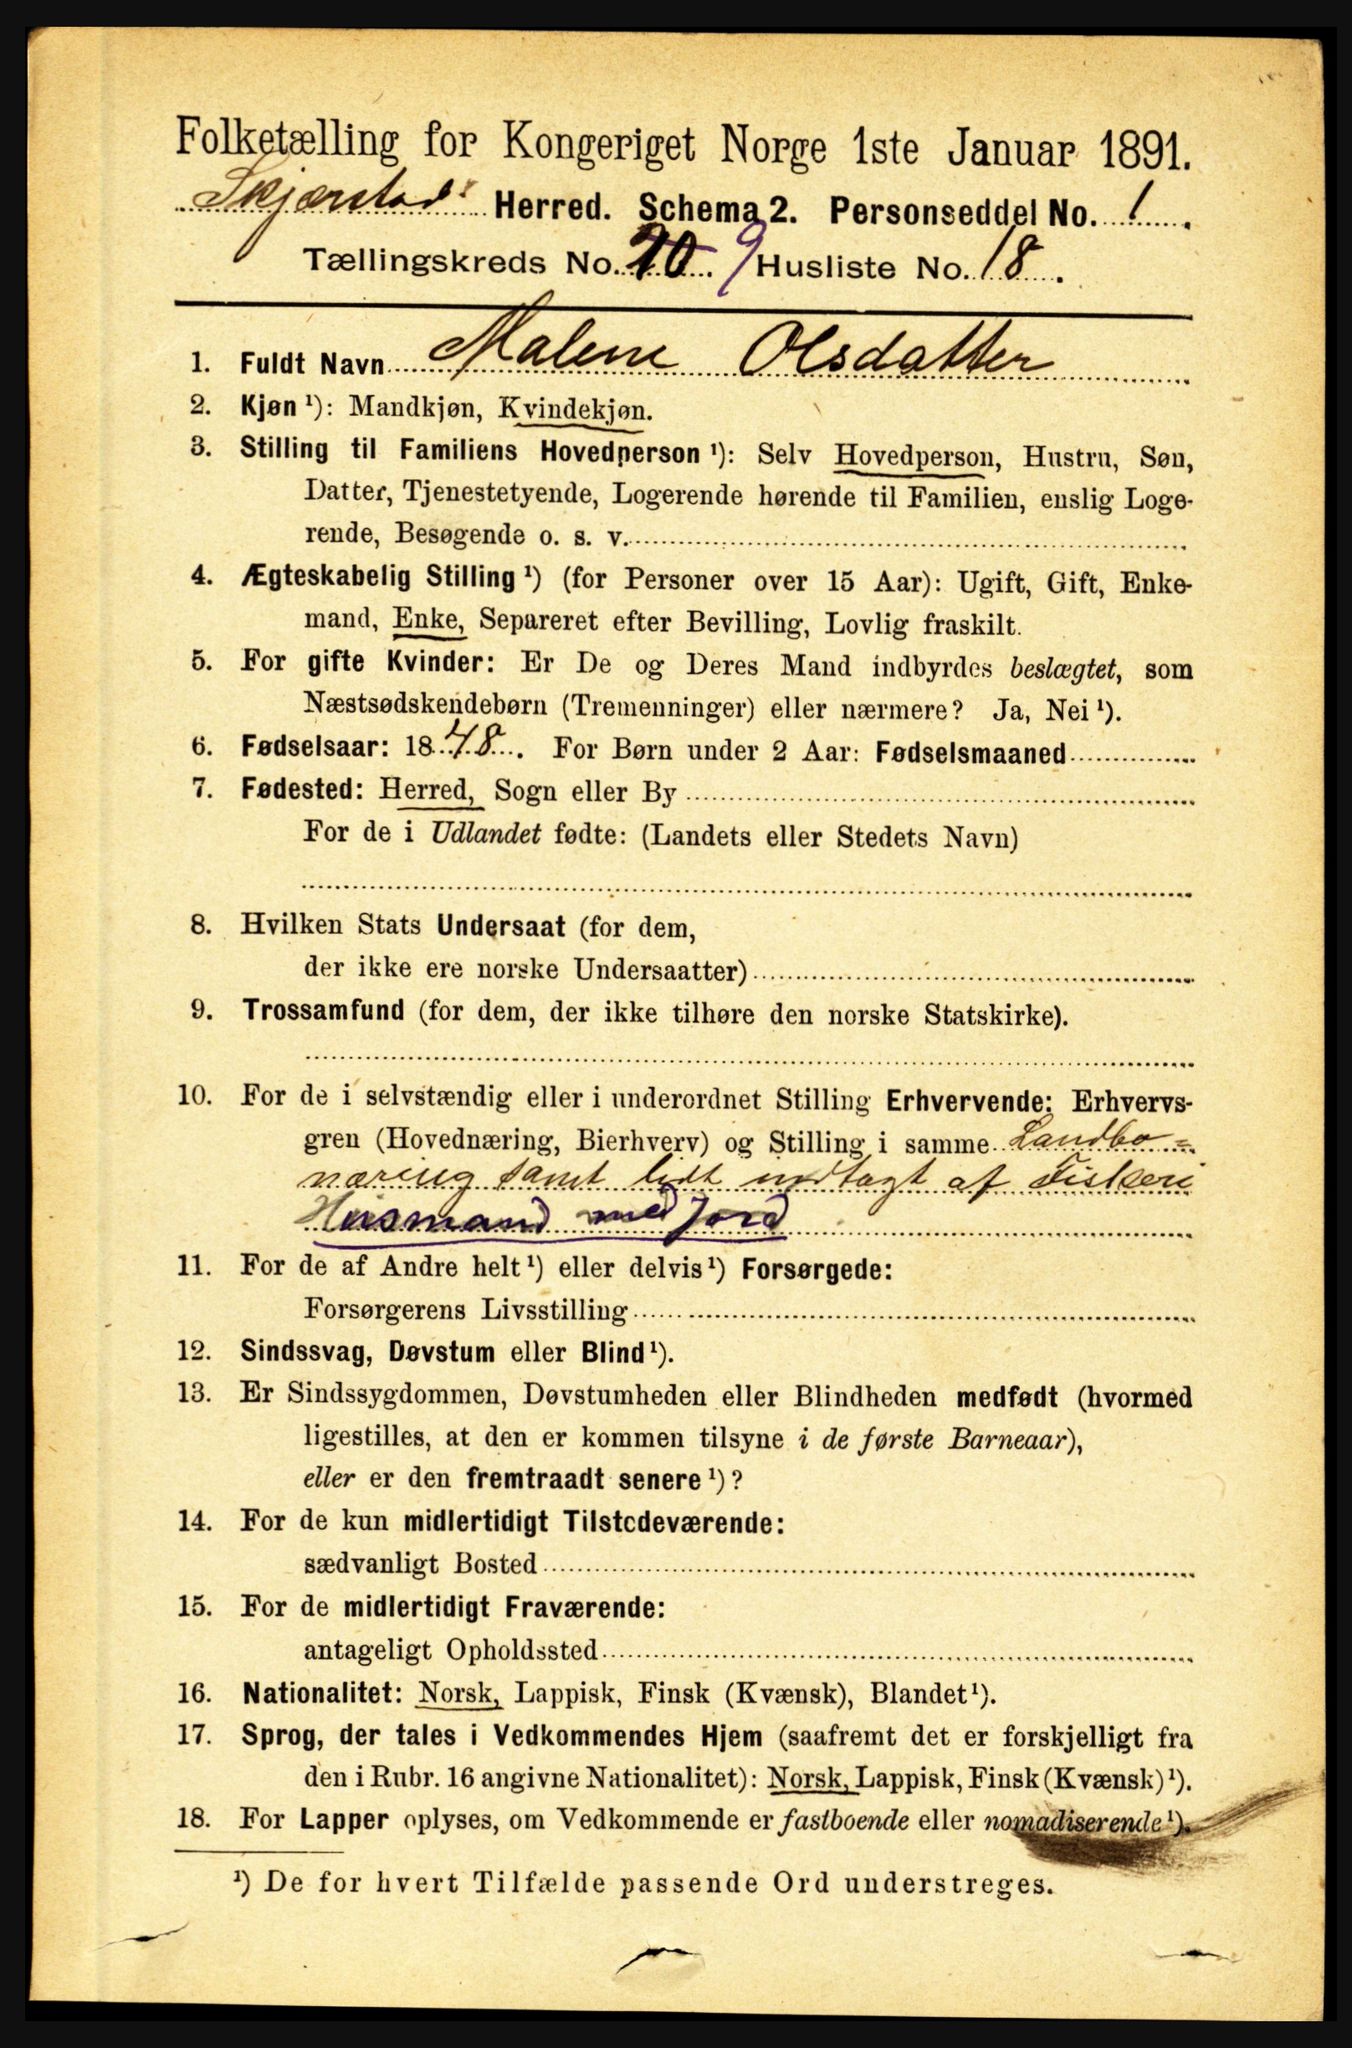 Folketælling for Kongeriget Norge 1ste Januar 1891.
Skjærstad Herred. Schema 2. Personseddel No. 1.
Tællingskreds No. 10. 9 Husliste No. 18.
1. Fuldt Navn Malene Olsdatter
2. Kjøn ¹): Mandkjøn, Kvindekjøn.
3. Stilling til Familiens Hovedperson ¹): Selv Hovedperson, Hustru, Søn,
Datter, Tjenestetyende, Logerende hørende til Familien, enslig Loge-
rende, Besøgende o. s. v.
4. Ægteskabelig Stilling ¹) (for Personer over 15 Aar): Ugift, Gift, Enke-
mand, Enke, Separeret efter Bevilling, Lovlig fraskilt.
5. For gifte Kvinder: Er De og Deres Mand indbyrdes beslægtet, som
Næstsødskendebørn (Tremenninger) eller nærmere? Ja, Nei ¹).
6. Fødselsaar: 1848. For Børn under 2 Aar: Fødselsmaaned
7. Fødested: Herred, Sogn eller By
For de i Udlandet fødte: (Landets eller Stedets Navn)
8. Hvilken Stats Undersaat (for dem,
der ikke ere norske Undersaatter)
9. Trossamfund (for dem, der ikke tilhøre den norske Statskirke).
10. For de i selvstændig eller i underordnet Stilling Erhvervende: Erhvervs-
gren (Hovednæring, Bierhverv) og Stilling i samme Landbo=
næring samt lidt indtagt af Fiskeri
Husmand med jord
11. For de af Andre helt ¹) eller delvis ¹) Forsørgede:
Forsørgerens Livsstilling
12. Sindssvag, Døvstum eller Blind ¹).
13. Er Sindssygdommen, Døvstumheden eller Blindheden medfødt (hvormed
ligestilles, at den er kommen tilsyne i de første Barneaar),
eller er den fremtraadt senere ¹)?
14. For de kun midlertidigt Tilstedeværende:
sædvanligt Bosted
15. For de midlertidigt Fraværende:
antageligt Opholdssted
16. Nationalitet: Norsk, Lappisk, Finsk (Kvænsk), Blandet ¹).
17. Sprog, der tales i Vedkommendes Hjem (saafremt det er forskjelligt fra
den i Rubr. 16 angivne Nationalitet): Norsk, Lappisk, Finsk (Kvænsk) ¹).
18. For Lapper oplyses, om Vedkommende er fastboende eller nomadiserende ¹).
¹) De for hvert Tilfælde passende Ord understreges.